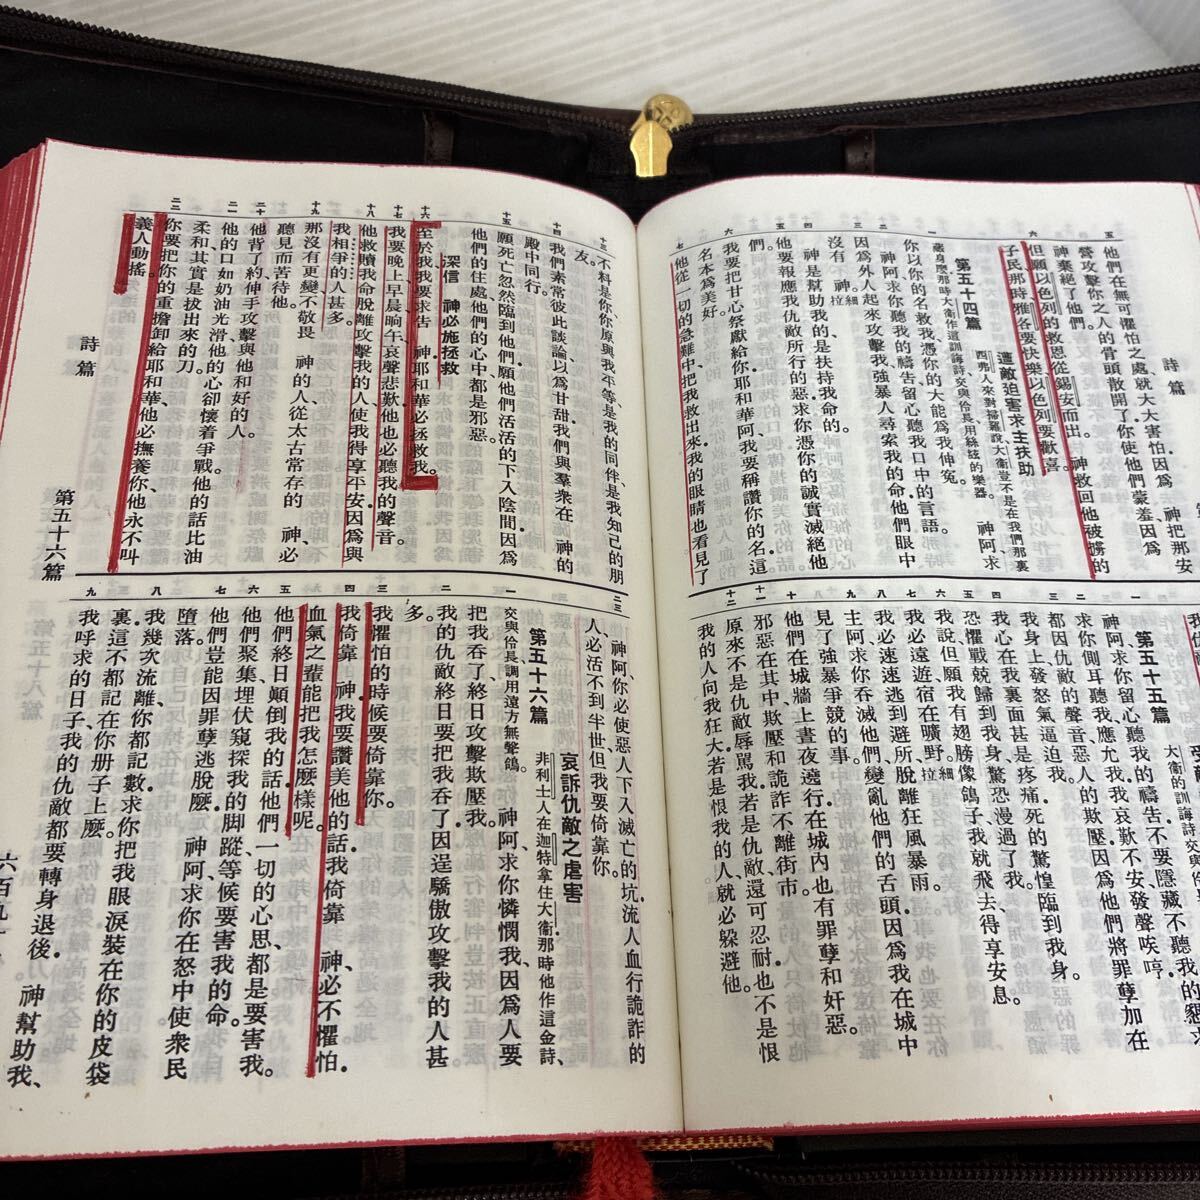 詩篇
五
他們在無可懼怕之處、就大大害怕、因爲　神把那安
營攻擊你之人的骨頭散開了．你使他們蒙羞、因爲
神棄絕了他們。
六
但願以色列的救恩從錫安而出．　神救回他被擄的
子民那時、雅各要快樂、以色列要歡喜。
第五十四篇　遭敵迫害求主扶助
西弗人來對掃羅說、大衛豈不是在我們那裏
藏身麼．那時大衛作這訓誨詩、交與伶長、用絲絃的樂器。
一
神阿、求
你以你的名救我、憑你的大能爲我伸冤。
二
神阿、求你聽我的禱告、留心聽我口中的言語。
三
因爲外人起來攻擊我、強暴人尋索我的命、他們眼中
沒有　神。細拉
四
神是幫助我的、是扶持我命的。
五
他要報應我仇敵所行的惡．求你憑你的誠實滅絕他
們。
六
我要把甘心祭獻給你．耶和華阿、我要稱讚你的名．這
名本爲美好。
七
他從一切的急難中把我救出來．我的眼睛也看見了
第五十五篇
大衛的訓誨詩、交與
一
神阿、求你留心聽我的禱告、不要隱藏不聽我的懇求．
二
求你側耳聽我、應允我．我哀歎不安、發聲唉哼．
三
都因仇敵的聲音、惡人的欺壓．因爲他們將罪孽加在
我身上、發怒氣逼迫我。
四
我心在我裏面甚是疼痛．死的驚惶臨到我身。
五
恐懼戰兢歸到我身、驚恐漫過了我。
六
我說、但願我有翅膀像鴿子、我就飛去得享安息。
七
我必遠遊宿在曠野。細拉
八
我必速速逃到避所、脫離狂風暴雨。
九
主阿、求你吞滅他們、變亂他們的舌頭．因爲我在城中
見了強暴爭競的事。
十
他們在城牆上晝夜遶行．在城內也有罪孽和奸惡。
十一
邪惡在其中．欺壓和詭詐不離街市。
十二
原來不是仇敵辱罵我．若是仇敵、還可忍耐．也不是恨
我的人向我狂大．若是恨我的人、就必躲避他。
十三
不料是你．你原與我平等、是我的同伴、是我知己的朋
友。
十四
我們素常彼此談論、以爲甘甜．我們與羣衆在　神的
殿中同行。
十五
願死亡忽然臨到他們、願他們活活的下入陰間．因爲
他們的住處、他們的心中、都是邪惡。
深信　神必施拯救
十六
至於我、我要求告　神．耶和華必拯救我。
十七
我要晚上、早晨、晌午、哀聲悲歎．他也必聽我的聲音。
十八
他救贖我命脫離攻擊我的人、使我得享平安．因爲與
我相爭的人甚多。
十九
那沒有更變、不敬畏　神的人、從太古常存的　神、必
聽見而苦待他。
二十
他背了約、伸手攻擊與他和好的人。
二一
他的口如奶油光滑、他的心卻懷着爭戰．他的話比油
柔和、其實是拔出來的刀。
二二
你要把你的重擔卸給耶和華、他必撫養你．他永不叫
義人動搖。
詩篇
第五十六篇
二三
神阿、你必使惡人下入滅亡的坑．流人血行詭詐的
人、必活不到半世．但我要倚靠你。
第五十六篇　哀訴仇敵之虐害
非利士人在迦特拿住大衛．那時他作這金詩、
交與伶長、調用遠方無聲鴿。
一
神阿、求你憐憫我、因爲人要
把我吞了、終日攻擊欺壓我。
二
我的仇敵終日要把我吞了．因逞驕傲攻擊我的人甚
多。
三
我懼怕的時候要倚靠你。
四
我倚靠　神、我要讚美他的話．我倚靠　神、必不懼怕．
血氣之輩能把我怎麼樣呢。
五
他們終日顛倒我的話．他們一切的心思、都是要害我。
六
他們聚集、埋伏窺探我的脚蹤、等候要害我的命。
七
他們豈能因罪孽逃脫麼．　神阿、求你在怒中使衆民
墮落。
八
我幾次流離、你都記數．求你把我眼淚裝在你的皮袋
裏．這不都記在你册子上麼。
九
我呼求的日子、我的仇敵都要轉身退後．　神幫助我、
六百九十